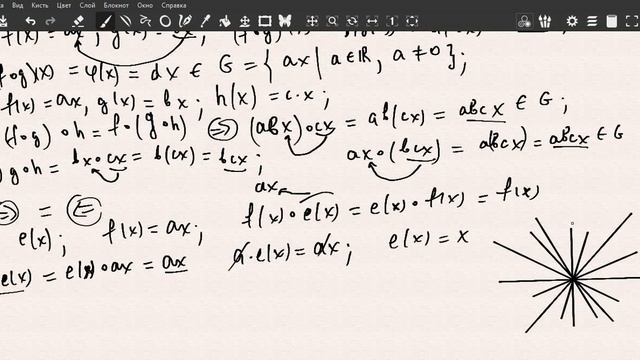 Вид Кисть Цвет Слой Блокнот Окно Справка
f(x) = ax, g(x) =
f∘g)(x) = φ(x) = dx ∈ G = { ax | a ∈ ℝ, a ≠ 0 };
f(x) = ax, g(x) = bx; h(x) = c·x;
(f∘g)∘h = f∘(g∘h) ⇔ (abx)∘cx = ab(cx) = abcx ∈ G;
g∘h = bx∘cx = b(cx) = bcx; ax∘(bcx) = a(bcx) = abcx ∈ G
ax
=
e(x); f(x) = ax; f(x)∘e(x) = e(x)∘f(x) = f(x)
e(x) = e(x)∘ax = ax a·e(x) = ax; e(x) = x